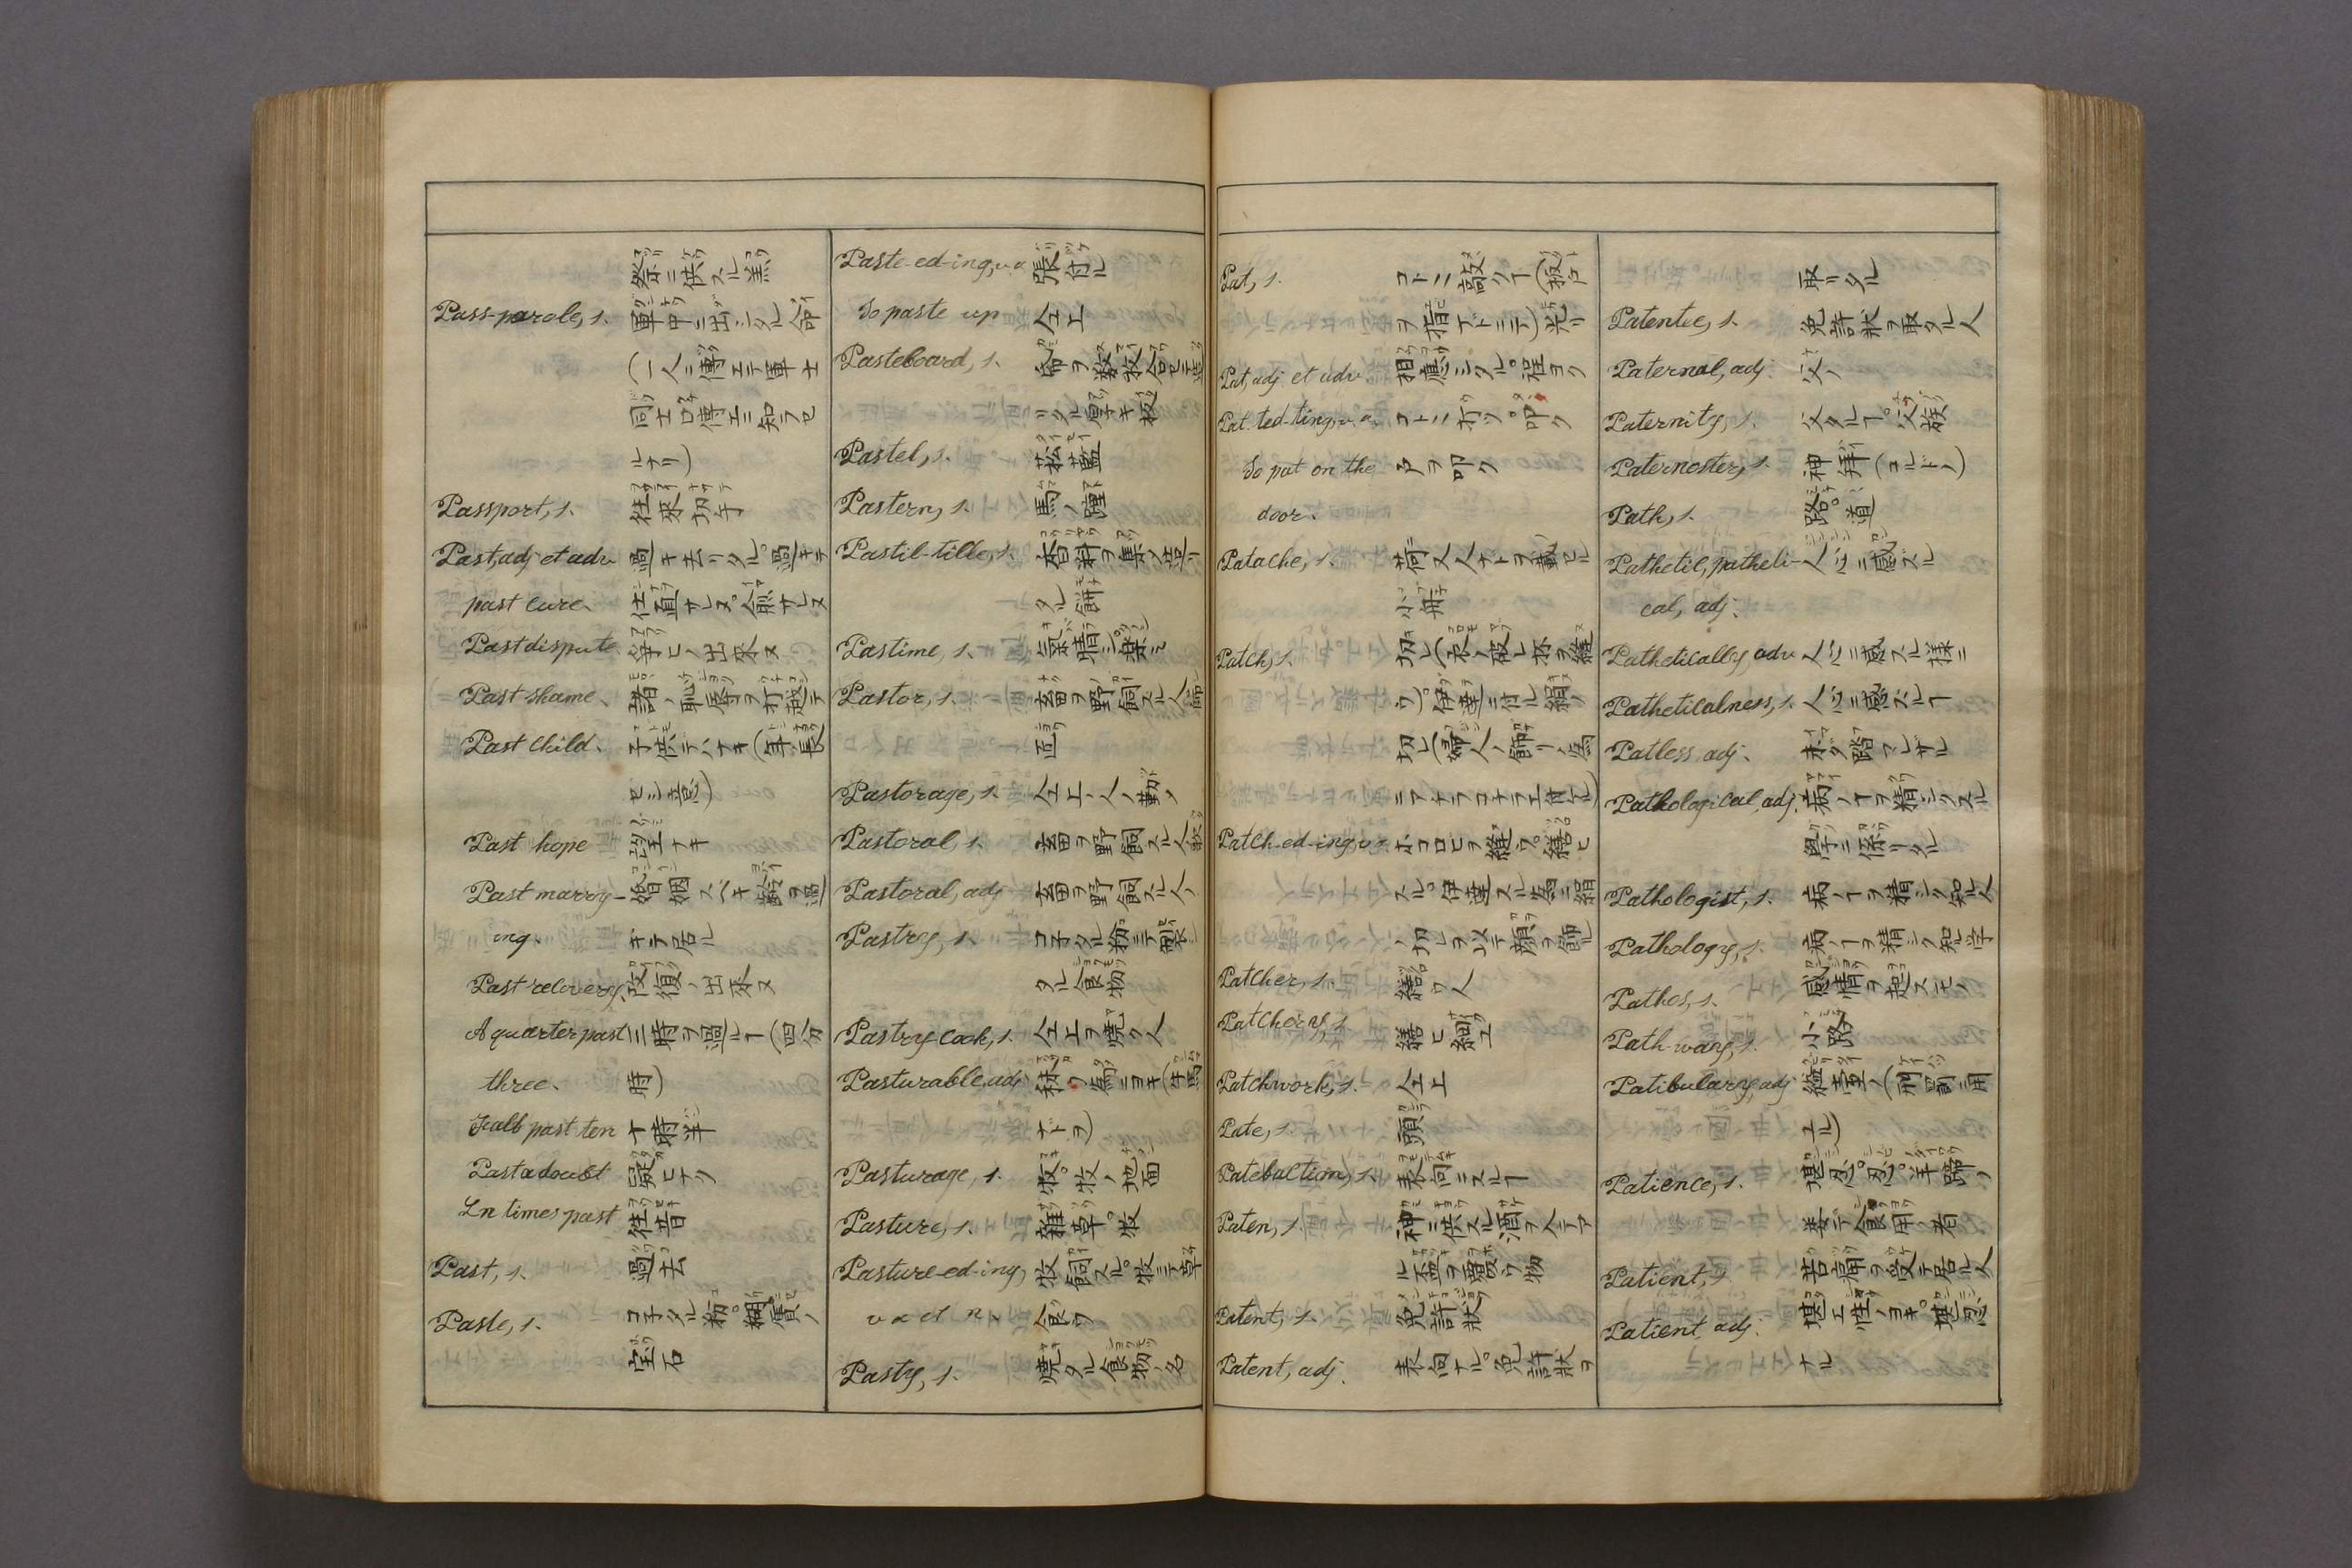 祭ニ供スル羔
Pass-parole, s. 軍中ニ出シタル命
(一人ニ傳エテ軍士
同士口傳エニ知ラセ
ルナリ)
Passport, s. 往來切手
Past, adj et adv 過キ去リタル。過キテ
past cure. 仕直サレヌ。愈サレヌ
Past dispute 爭ヒノ出來ヌ
Past shame. 諸ノ恥辱ヲ打越テ
Past child. 子供テハナキ(年長
セシ意)
Past hope 望ナキ
Past marry- 婚姻スベキ齢ヲ過
ing. ギテ居ル
Past recovery. 改復ノ出來ヌ
A quarter past 三時ヲ過ルㄱ(四分
three. 時)
Half past ten 十時半
Past a doubt 疑ヒナク
In times past 往昔
Past, s. 過去
Paste, s. コ子タル粉。糊。贋ノ
宝石
Paste-ed-ing, v.a. 張付ル
To paste up 仝上
Pasteboard, s. 帋ヲ数枚合セテ造
リタル厚キ板
Pastel, s. 菘藍
Pastern, s. 馬ノ踵
Pastil-tille, s. 香料ヲ集メ造リ
タル餅
Pastime, s. 氣晴シ。楽ミ
Pastor, s. 畜ヲ野飼スル人。師
匠
Pastorage, s. 仝上ノ人ノ勤メ
Pastoral, s. 畜ヲ野飼スル人ノ歌
Pastoral, adj 畜ヲ野飼スル人ノ
Pastry, s. コ子タル粉ニテ製シ
タル食物
Pastry cook, s. 仝上ヲ燒ク人
Pasturable, adj 秣カフ為ニヨキ(牛馬
ナドヲ)
Pasturage, s. 牧。牧ノ地面
Pasture, s. 雜草。牧
Pasture-ed-ing, 牧飼スル。牧ニテ草
v a et n. 食フ
Pasty, s. 燒タル食物ノ名
Pat, s. コトニ敲クㄱ(板戸
ヲ指ナドニテ)光リ
Pat, adj. et adv. 相應シタル。程ヨク
Pat-ted-ting, v. a. コトニ打ツ。叩ク
To pat on the 戸ヲ叩ク
door.
Patache, s. 荷又人ナドヲ載セル
小舟
Patch, s. 切レ(衣ノ破レ抔ヲ縫
フ)。伊達ニ付ル絹ノ
切レ(婦人ノ飾リノ為
ニアチラコチラエ付ケル)
Patch-ed-ing, v a ホコロビヲ縫フ。繕ヒ
スル。伊達スル為ニ絹
ノ切レヲ以テ顔ヲ飾ル
Patcher, s. 繕フ人
Patchery, s. 繕ヒ細工
Patchwork, s. 仝上
Pate, s. 頭
Patefaction, s. 表向ニスルㄱ
Paten, s. 神ニ供スル酒ヲ入テア
ル盃ヲ覆フ物
Patent, s. 免許狀
Patent, adj. 表向ナル。免許狀ヲ
取リタル
Patentee, s. 免許狀ヲ取タル人
Paternal, adj. 父ノ
Paternity, s. 父タルㄱ。父族
Paternoster, s. 神拜(ユルドノ)
Path, s. 路。道
Pathetic, patheti- 人心ニ感スル
cal, adj.
Pathetically, adv 人心ニ感スル樣ニ
Patheticalness, s. 人心ニ感スルㄱ
Patless adj. 未ダ踏マレザル
Pathological, adj. 病ノㄱヲ精シクスル
學ニ係リタル
Pathologist, s. 病ノㄱヲ精シク知ル人
Pathology, s. 病ノㄱヲ精シク知ル学
Pathos, s. 感情ヲ起スモノ
Path-way, s. 小路
Patibulary, adj 縊臺ノ(刑罰ニ用
ユル)
Patience, s. 堪忍。忍。羊蹄ノ
葉ニテ食用ノ者
Patient, s. 苦痛ヲ受テ居ル人
Patient adj. 堪エ性ノヨキ。堪忍
ナル